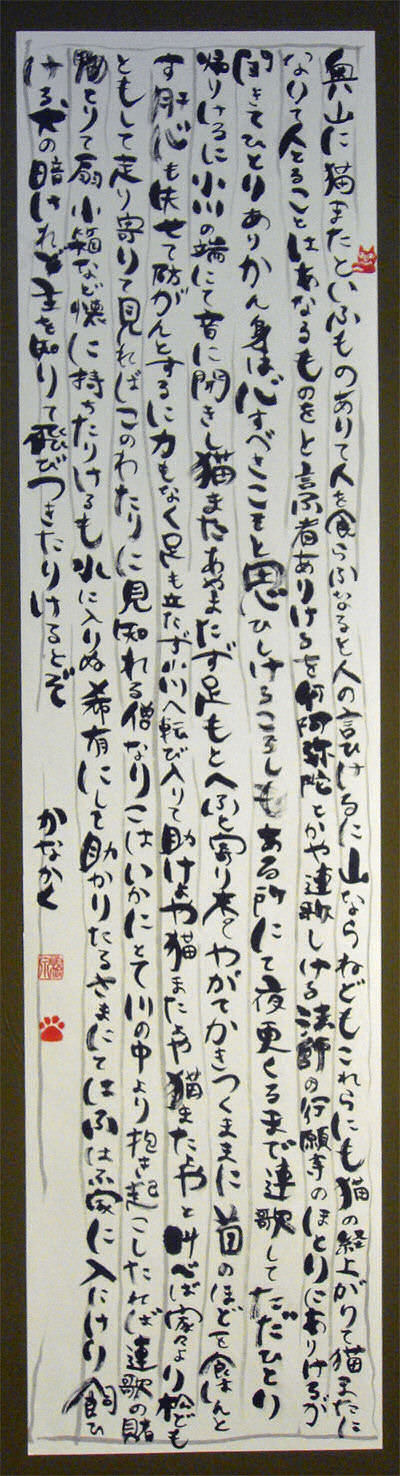 奥山に猫またといふものありて人を食らふなると人の言ひけるに山ならねどもこれらにも猫の経上がりて猫またに
なりて人とることはあなるものをと言ふ者ありけるを何阿弥陀とかや連歌しける法師の行願寺のほとりにありけるが
聞きてひとりありかん身は心すべきことと思ひしけるころしもある所にて夜更くるまで連歌してただひとり
帰りけるに小川の端にて音に聞きし猫またあやまたず足もとへふと寄り来てやがてかきつくままに首のほどを食はんと
す肝心も失せて防がんとするに力もなく足も立たず小川へ転び入りて助けよや猫またよや猫またよやと叫べば家々より松ども
ともして走り寄りて見ればこのわたりに見知れる僧なりこはいかにとて川の中より抱き起こしたれば連歌の賭
物とりて扇小箱など懐に持ちたりけるも水に入りぬ希有にして助かりたるさまにてはふはふ家に入にけり飼ひ
ける犬の暗けれど主を知りて飛びつきたりけるとぞ
かなかく